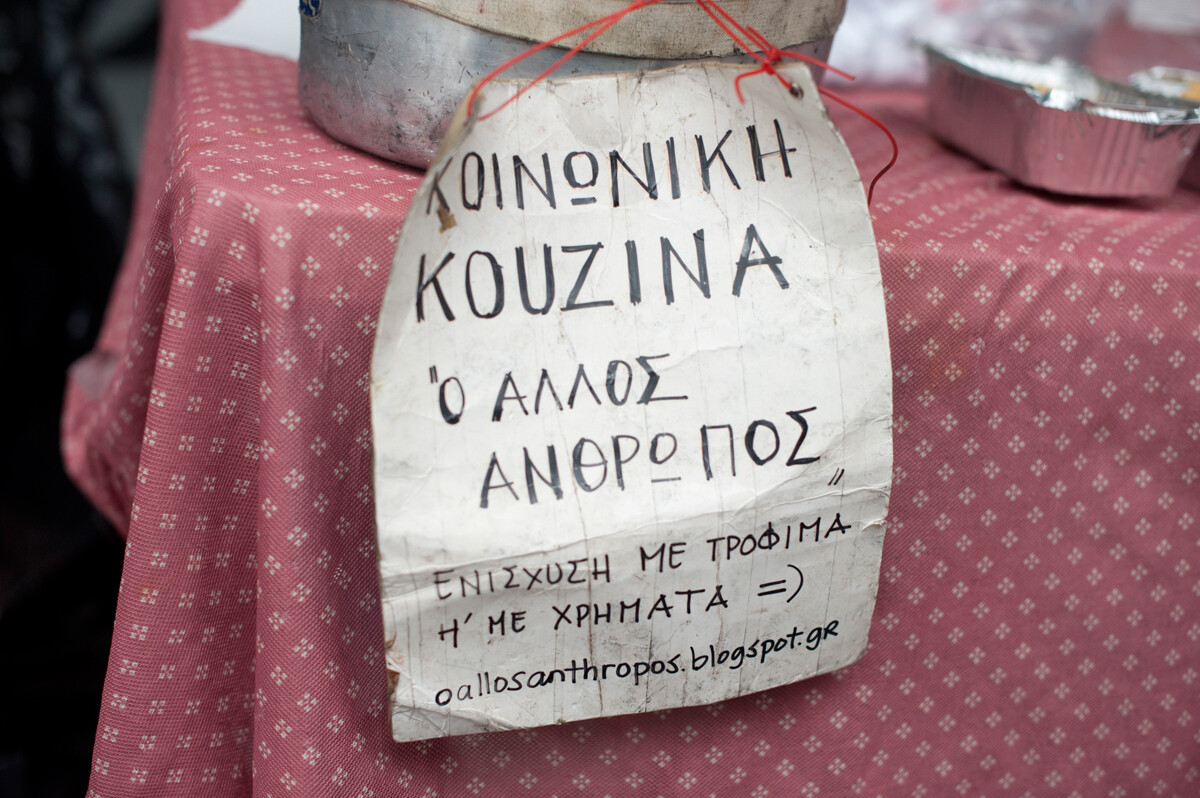 ΚΟΙΝΩΝΙΚΗ
ΚΟΥΖΙΝΑ
"Ο ΑΛΛΟΣ
ΑΝΘΡΩΠΟΣ"
ΕΝΙΣΧΥΣΗ ΜΕ ΤΡΟΦΙΜΑ
Η' ΜΕ ΧΡΗΜΑΤΑ =)
oallosanthropos.blogspot.gr